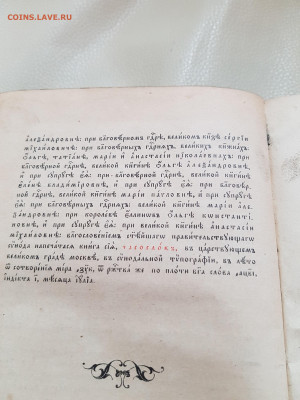 COINS.LAVE.RU
а҆леѯа́ндровичѣ: при бл҃говѣ́рномъ гдⷭ҇рѣ, вели́комъ кнѧ́зѣ се́ргїи
мїха́йловичѣ: при бл҃говѣ́рныхъ гдⷭ҇рнѧхъ, вели́кихъ кнѧжна́хъ
ѻ҆́льгѣ, татїа́нѣ, марі́и и҆ а҆настасі́и нїкола́евнахъ: при
бл҃говѣ́рной гдⷭ҇рнѣ, вели́кой кнѧги́нѣ ѻ҆́льгѣ а҆леѯа́ндровнѣ,
и҆ при сꙋпрꙋ́гѣ є҆ѧ̀: при бл҃говѣ́рной гдⷭ҇рнѣ, вели́кой кнѧги́нѣ
є҆ле́нѣ влади́мїровнѣ, и҆ при сꙋпрꙋ́гѣ є҆ѧ̀: при бл҃говѣ́р-
ной гдⷭ҇рнѣ, вели́кой кнѧги́нѣ марі́и па́ѵловнѣ, и҆ при сꙋпрꙋ́гѣ
є҆ѧ̀: при бл҃говѣ́рныхъ гдⷭ҇рнѧхъ, вели́кой кнѧги́нѣ марі́и а҆ле-
ѯа́ндровнѣ: при короле́вѣ є҆́ллинѡвъ ѻ҆́льгѣ кѡнстанті́-
новнѣ, и҆ при сꙋпрꙋ́гѣ є҆ѧ̀: при вели́кой кнѧги́нѣ а҆настасі́и
мїха́йловнѣ: бл҃гослове́нїемъ ст҃ѣ́йшагѡ прави́тельствꙋющагѡ
сѷно́да напеча́тасѧ кни́га сїѧ̀, часосло́въ, въ ца́рствꙋющемъ
вели́комъ гра́дѣ москвѣ̀, въ сѷнода́льной тѷпогра́фїи, въ лѣ́то
ѿ сотворе́нїѧ мі́ра ... ѿ рж҃тва́ же по пло́ти бг҃а сло́ва ...
і҆нді́кта і҃, мѣ́сѧца і҆ꙋ́лїа.